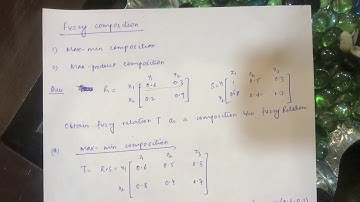 Fuzzy composition
1) Max-min composition
2) Max-product composition
y1 y2
z1 z2 z3
R = x1 [ 0.6 0.3
S = y1 [ 1 0.5 0.3
x2 0.2 0.9 ]
y2 0.8 0.4 0.7 ]
Obtain fuzzy relation T as a composition b/w fuzzy relations
max-min composition
z1 z2 z3
T = R∘S = x1 [ 0.6 0.5 0.3
x2 0.8 0.4 0.7 ]